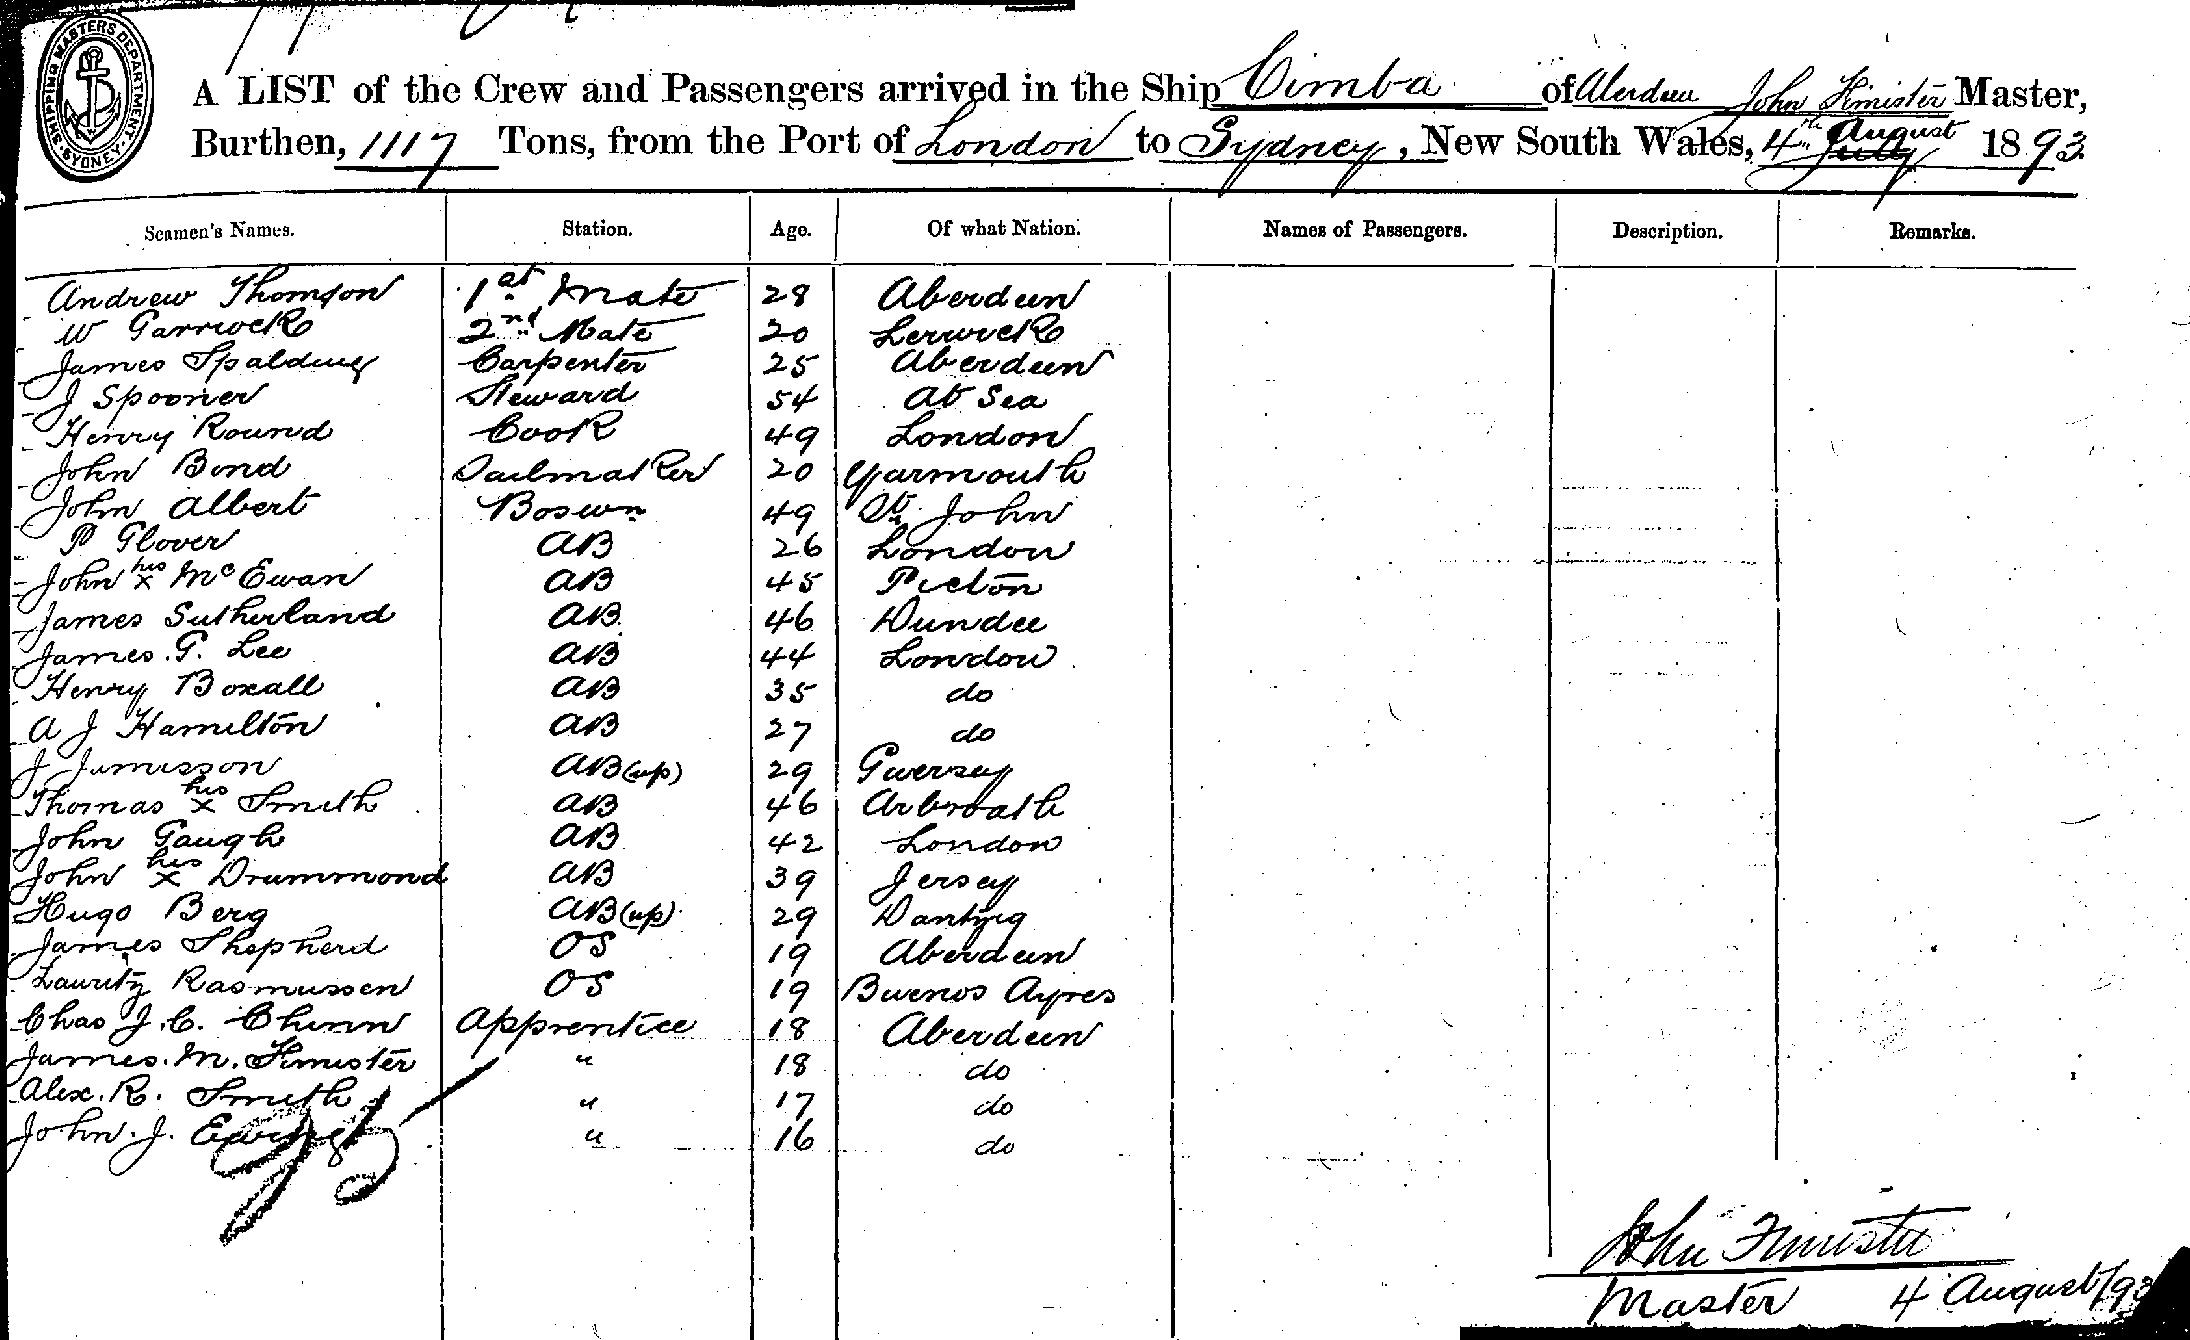 SHIPPING MASTERS DEPARTMENT SYDNEY
A LIST of the Crew and Passengers arrived in the Ship Cimba of Aberdeen John Fimister Master,
Burthen, 1117 Tons, from the Port of London to Sydney, New South Wales, 4th July August 1893
Seamen's Names. Station. Age. Of what Nation. Names of Passengers. Description. Remarks.
Andrew Thomson 1st Mate 28 Aberdeen
W Garriock 2nd Mate 20 Lerwick
James Spalding Carpenter 25 Aberdeen
J Spooner Steward 54 At Sea
Henry Round Cook 49 London
John Bond Sailmaker 20 Yarmouth
John Albert Boswn 49 St. John
P Glover AB 26 London
John his x McEwan AB 45 Picton
James Sutherland AB 46 Dundee
James. G. Lee AB 44 London
Henry Boxall AB 35 do
A J Hamilton AB 27 do
J Jamisson AB (up) 29 Guersey
Thomas his x Smith AB 46 Arbroath
John Gaugh AB 42 London
John his x Drummond AB 39 Jersey
Hugo Berg AB (up) 29 Dantzig
James Shepherd OS 19 Aberdeen
Lauritz Rasmussen OS 19 Buenos Ayres
Chas J. C. Chinn Apprentice 18 Aberdeen
James. M. Fimister " 18 do
Alex. R. Smith " 17 do
John. J. Ewing " 16 do
John Fimister
Master 4 August/93